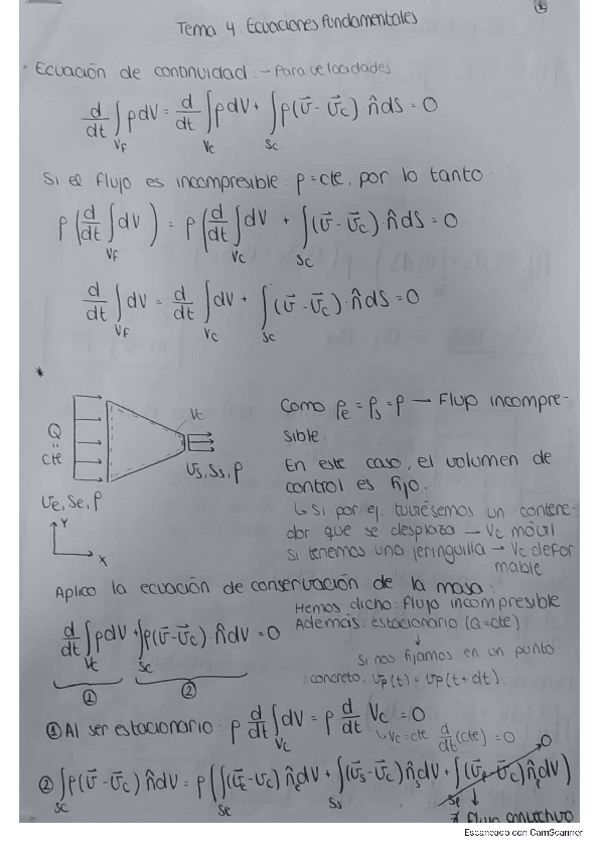 Tema 4 Ecuaciones Fundamentales
· Ecuación de continuidad: - Para velocidades
d/dt ∫_{Vf} ρdV = d/dt ∫_{Vc} ρdV + ∫_{Sc} ρ(v⃗ - v⃗c) n̂dS = 0
Si el flujo es incompresible: ρ = cte, por lo tanto:
ρ(d/dt ∫_{Vf} dV) = ρ(d/dt ∫_{Vc} dV + ∫_{Sc} (v⃗ - v⃗c)·n̂dS = 0
d/dt ∫_{Vf} dV = d/dt ∫_{Vc} dV + ∫_{Sc} (v⃗ - v⃗c)·n̂dS = 0
*
Q
=
cte
Ve, Se, ρ
Vc
Vs, Ss, ρ
Y
X
Como ρe = ρs = ρ → Flujo incompre-
sible.
En este caso, el volumen de
control es fijo.
↳ Si por ej. tuviésemos un contene-
dor que se desplaza → Vc móvil
Si tenemos una jeringuilla → Vc defor
mable
Aplico la ecuación de conservación de la masa:
d/dt ∫_{Vc} ρdV + ∫_{Sc} ρ(v⃗ - v⃗c)·n̂dV = 0
① ②
Hemos dicho: flujo incompresible
Además: estacionario (Q = cte)
↓
Si nos fijamos en un punto
concreto, vp(t) = vp(t + dt).
① Al ser estacionario: ρ d/dt ∫_{Vc} dV = ρ d/dt Vc = 0
↳ Vc = cte d/dt (cte) = 0
② ∫_{Sc} ρ(v⃗ - v⃗c) n̂dV = ρ(∫_{Se} (v⃗e - vc) n̂e dV + ∫_{Ss} (v⃗s - v⃗c) n̂s dV + ∫_{Sl} (v⃗l - v⃗c) n̂l dV) 0
↓
∄ flujo convectivo
Escaneado con CamScanner